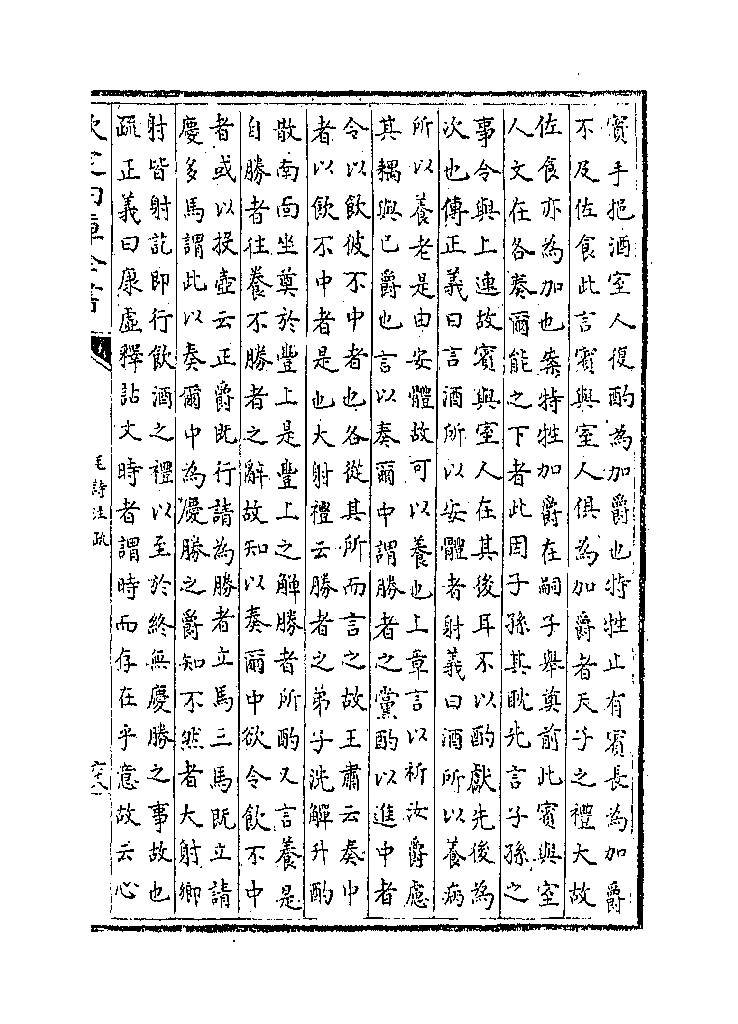 賓手挹酒室人復酌為加爵也特牲止有賓長為加爵
不及佐食此言賓與室人俱為加爵者天子之禮大故
佐食亦為加也案特牲加爵在嗣子舉奠前此賓與室
人文在各奏爾能之下者此因子孫其耽先言子孫之
事令與上連故賓與室人在其後耳不以酌獻先後為
次也傳正義曰言酒所以安體者射義曰酒所以養病
所以養老是由安體故可以養也上章言以祈汝爵慮
其耦與己爵也言以奏爾中謂勝者之黨酌以進中者
令以飲彼不中者也各從其所而言之故王肅云奏中
者以飲不中者是也大射禮云勝者之弟子洗觶升酌
散南面坐奠於豐上是豐上之觶勝者所酌又言養是
自勝者往養不勝者之辭故知以奏爾中欲令飲不中
者或以投壺云正爵既行請為勝者立馬三馬既立請
慶多馬謂此以奏爾中為慶勝之爵知不然者大射鄉
射皆射訖即行飲酒之禮以至於終無慶勝之事故也
疏正義曰康虛釋詁文時者謂時而存在乎意故云心
欽定四庫全書
毛詩注疏